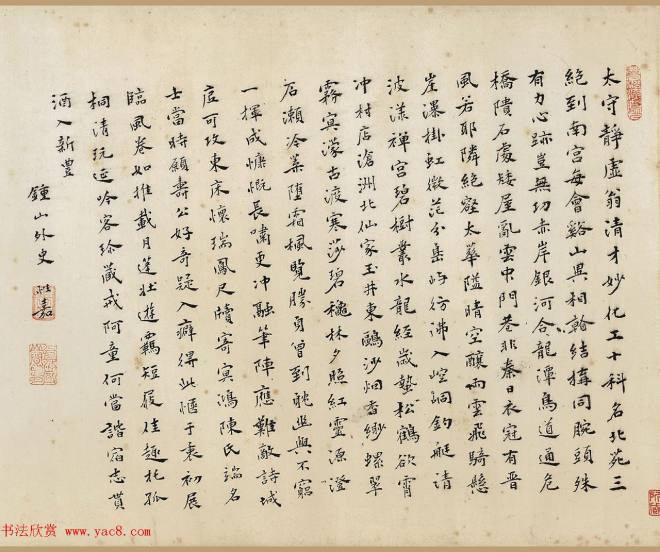 太守靜虛翁清才妙化工十科名北苑三
絕到南宮每會谿山興相翰結構同腕頭殊
有力心跡豈無功赤岸銀河合龍潭鳥道通危
橋隤石處矮屋亂雲中門巷非秦日衣冠有晉
風若耶隣絕壑太華隘晴空釀雨雲飛騎懸
崖瀑掛虹微茫分島嶼彷彿入崆峒釣艇清
波漾禪宮碧樹叢水龍經歲蟄松鶴欲霄
冲村店滄洲北仙家玉井東鷗沙烟杳緲螺翠
霧寅濛古渡寒莎碧穠林夕照紅靈源澄
石瀨冷葉墮霜楓覽勝身曾到眺幽興不窮
一揮成慷慨長嘯更冲融筆陣應難敵詩城
庶可攻東床懷瑞鳳尺牘寄冥鴻陳氏端名
士當時願壽公好奇疑入癖得此愜于衷初展
臨風卷如推載月篷壯遊羈短屐佳趣托孤
桐清玩延吟客珍藏戒阿童何當諧宿志貰
酒入新豐
鍾山外史 嘉
书法欣赏 www.yac8.com